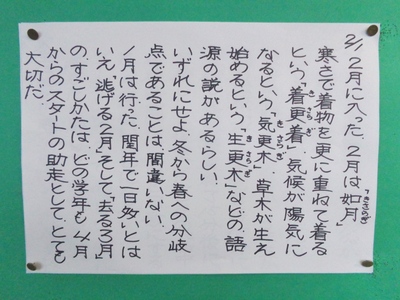 2/1 2月に入った。2月は「如月」(きさらぎ)
寒さで着物を更に重ねて着る
という「着更着」(きさらぎ)気候が陽気に
なるという「気更来」(きさらぎ)草木が生え
始めるという「生更木」(きさらぎ)などの語
源の説があるらしい。
いずれにせよ、冬から春への分岐
点であることは間違いない。
1月は行った。閏年で一日多いとは
いえ「逃げる2月」そして「去る3月」
の、すごしかたは、どの学年も4月
からのスタートの助走として、とても
大切だ。